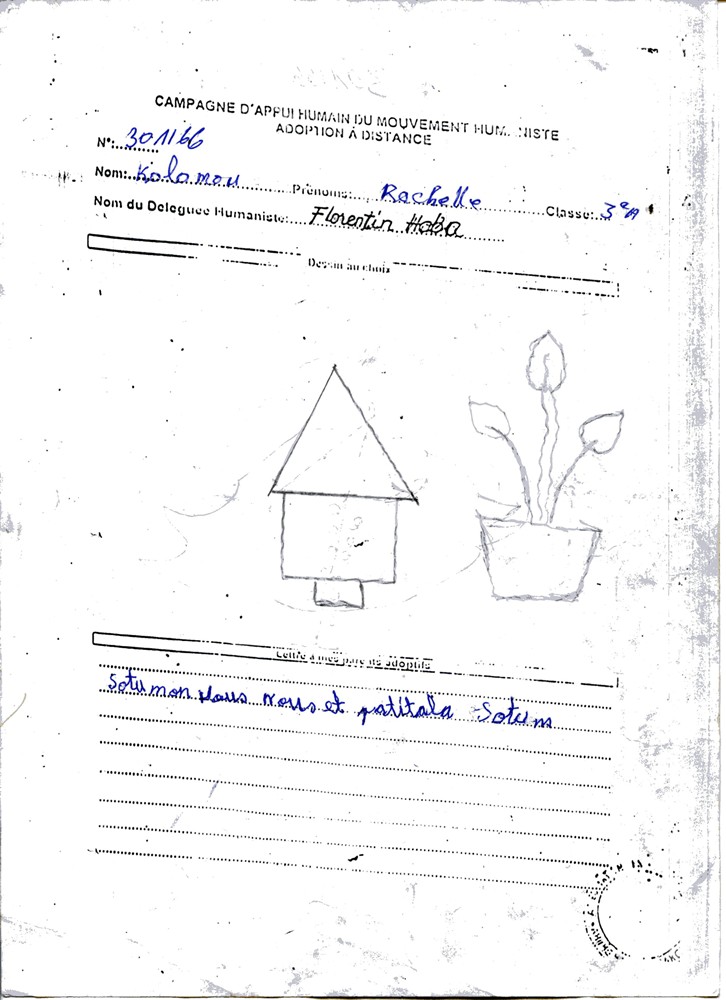 CAMPAGNE D'APPUI HUMAIN DU MOUVEMENT HUM...NISTE
ADOPTION À DISTANCE
N°:...301166
Nom:..Kolamou Prénoms:... Rachelle ...Classe:..3eA
Nom du Deleguee Humaniste:... Florentin Haba
Dessin au choix
Lettre à mes parents adoptifs
Sotu mon vous nous et patitala Sotum